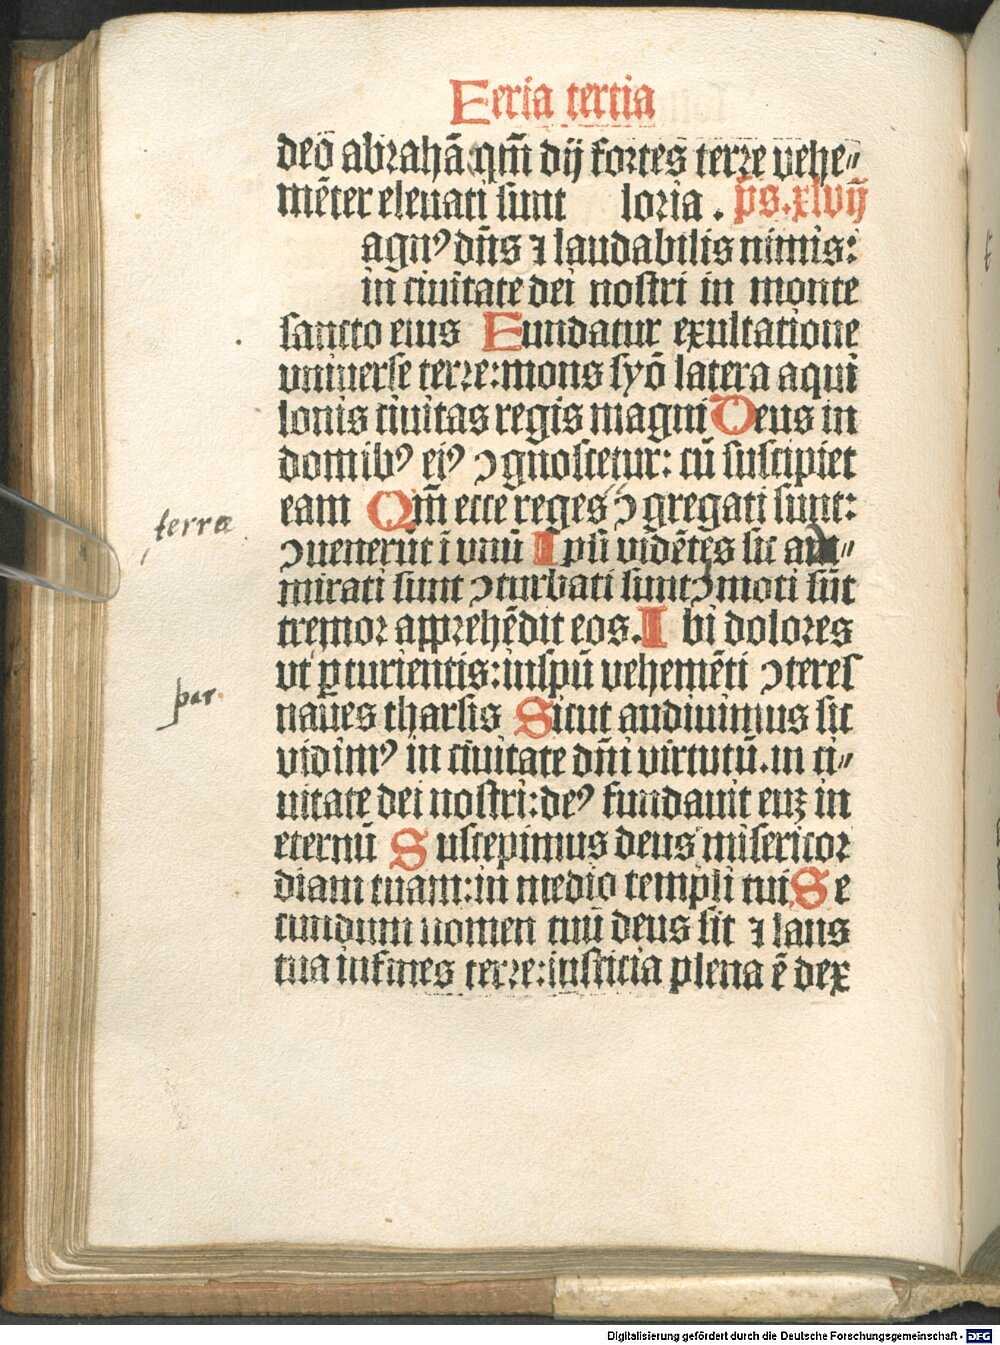 Feria tertia
deo̅ abrahā:qm̅ dij fortes terre vehe⸗
mēter eleuati sunt loria . p̅s.xlvij
agnꝰ dn̅s ⁊ laudabilis nimis:
in ciuitate dei nostri in monte
sancto eius Fundatur exultatione
vniuerse terre:mons syō latera aqui
lonis ciuitas regis magni Deus in
domibꝰ eiꝰ ꝯgnoscetur: cū suscipiet
eam Qm̅ ecce reges ꝯgregati sunt:
terrae
ꝯuenerūt ī vnū Ipsi vidētes sic ad⸗
mirati sunt ꝯturbati sunt ꝯmoti sūt
tremor apprehēdit eos. Ibi dolores
vt ꝑturientis:in spū vehemēti ꝯteres
par.
naues tharsis Sicut audiuimus sic
vidimꝰ in ciuitate dn̅i virtutū.in ci⸗
uitate dei nostri:deꝰ fundauit euꝫ in
eternū Suscepimus deus misericor
diam tuam:in medio templi tui Se
cundum nomen tuū deus sic ⁊ laus
tua in fines terre:iusticia plena ē dex
Digitalisierung gefördert durch die Deutsche Forschungsgemeinschaft - DFG